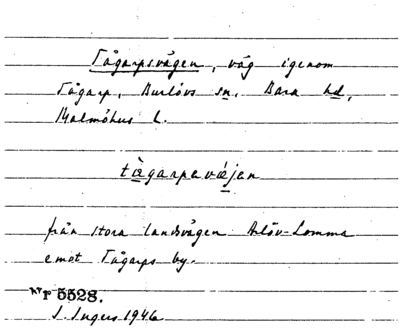 Tågarpsvägen, väg igenom
Tågarp, Burlövs sn. Bara hd,
Malmöhus l.
tàgarpavæjen
från stora landsvägen Arlöv-Lomma
emot Tågarps by.
Nr F 5528.
I. Ingers 1946